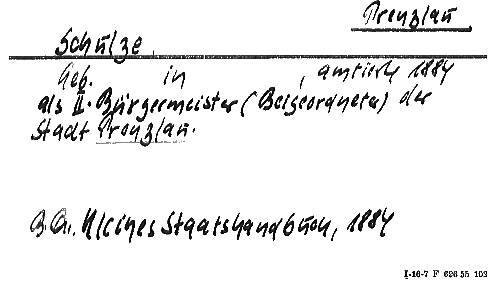 Prenzlau
Schulze,
Geb. in , amtierte 1884
als II. Bürgermeister (Beigeordneter) der
Stadt Prenzlau.
Kleines Staatshandbuch, 1884
I-16-7 F 626 55 103